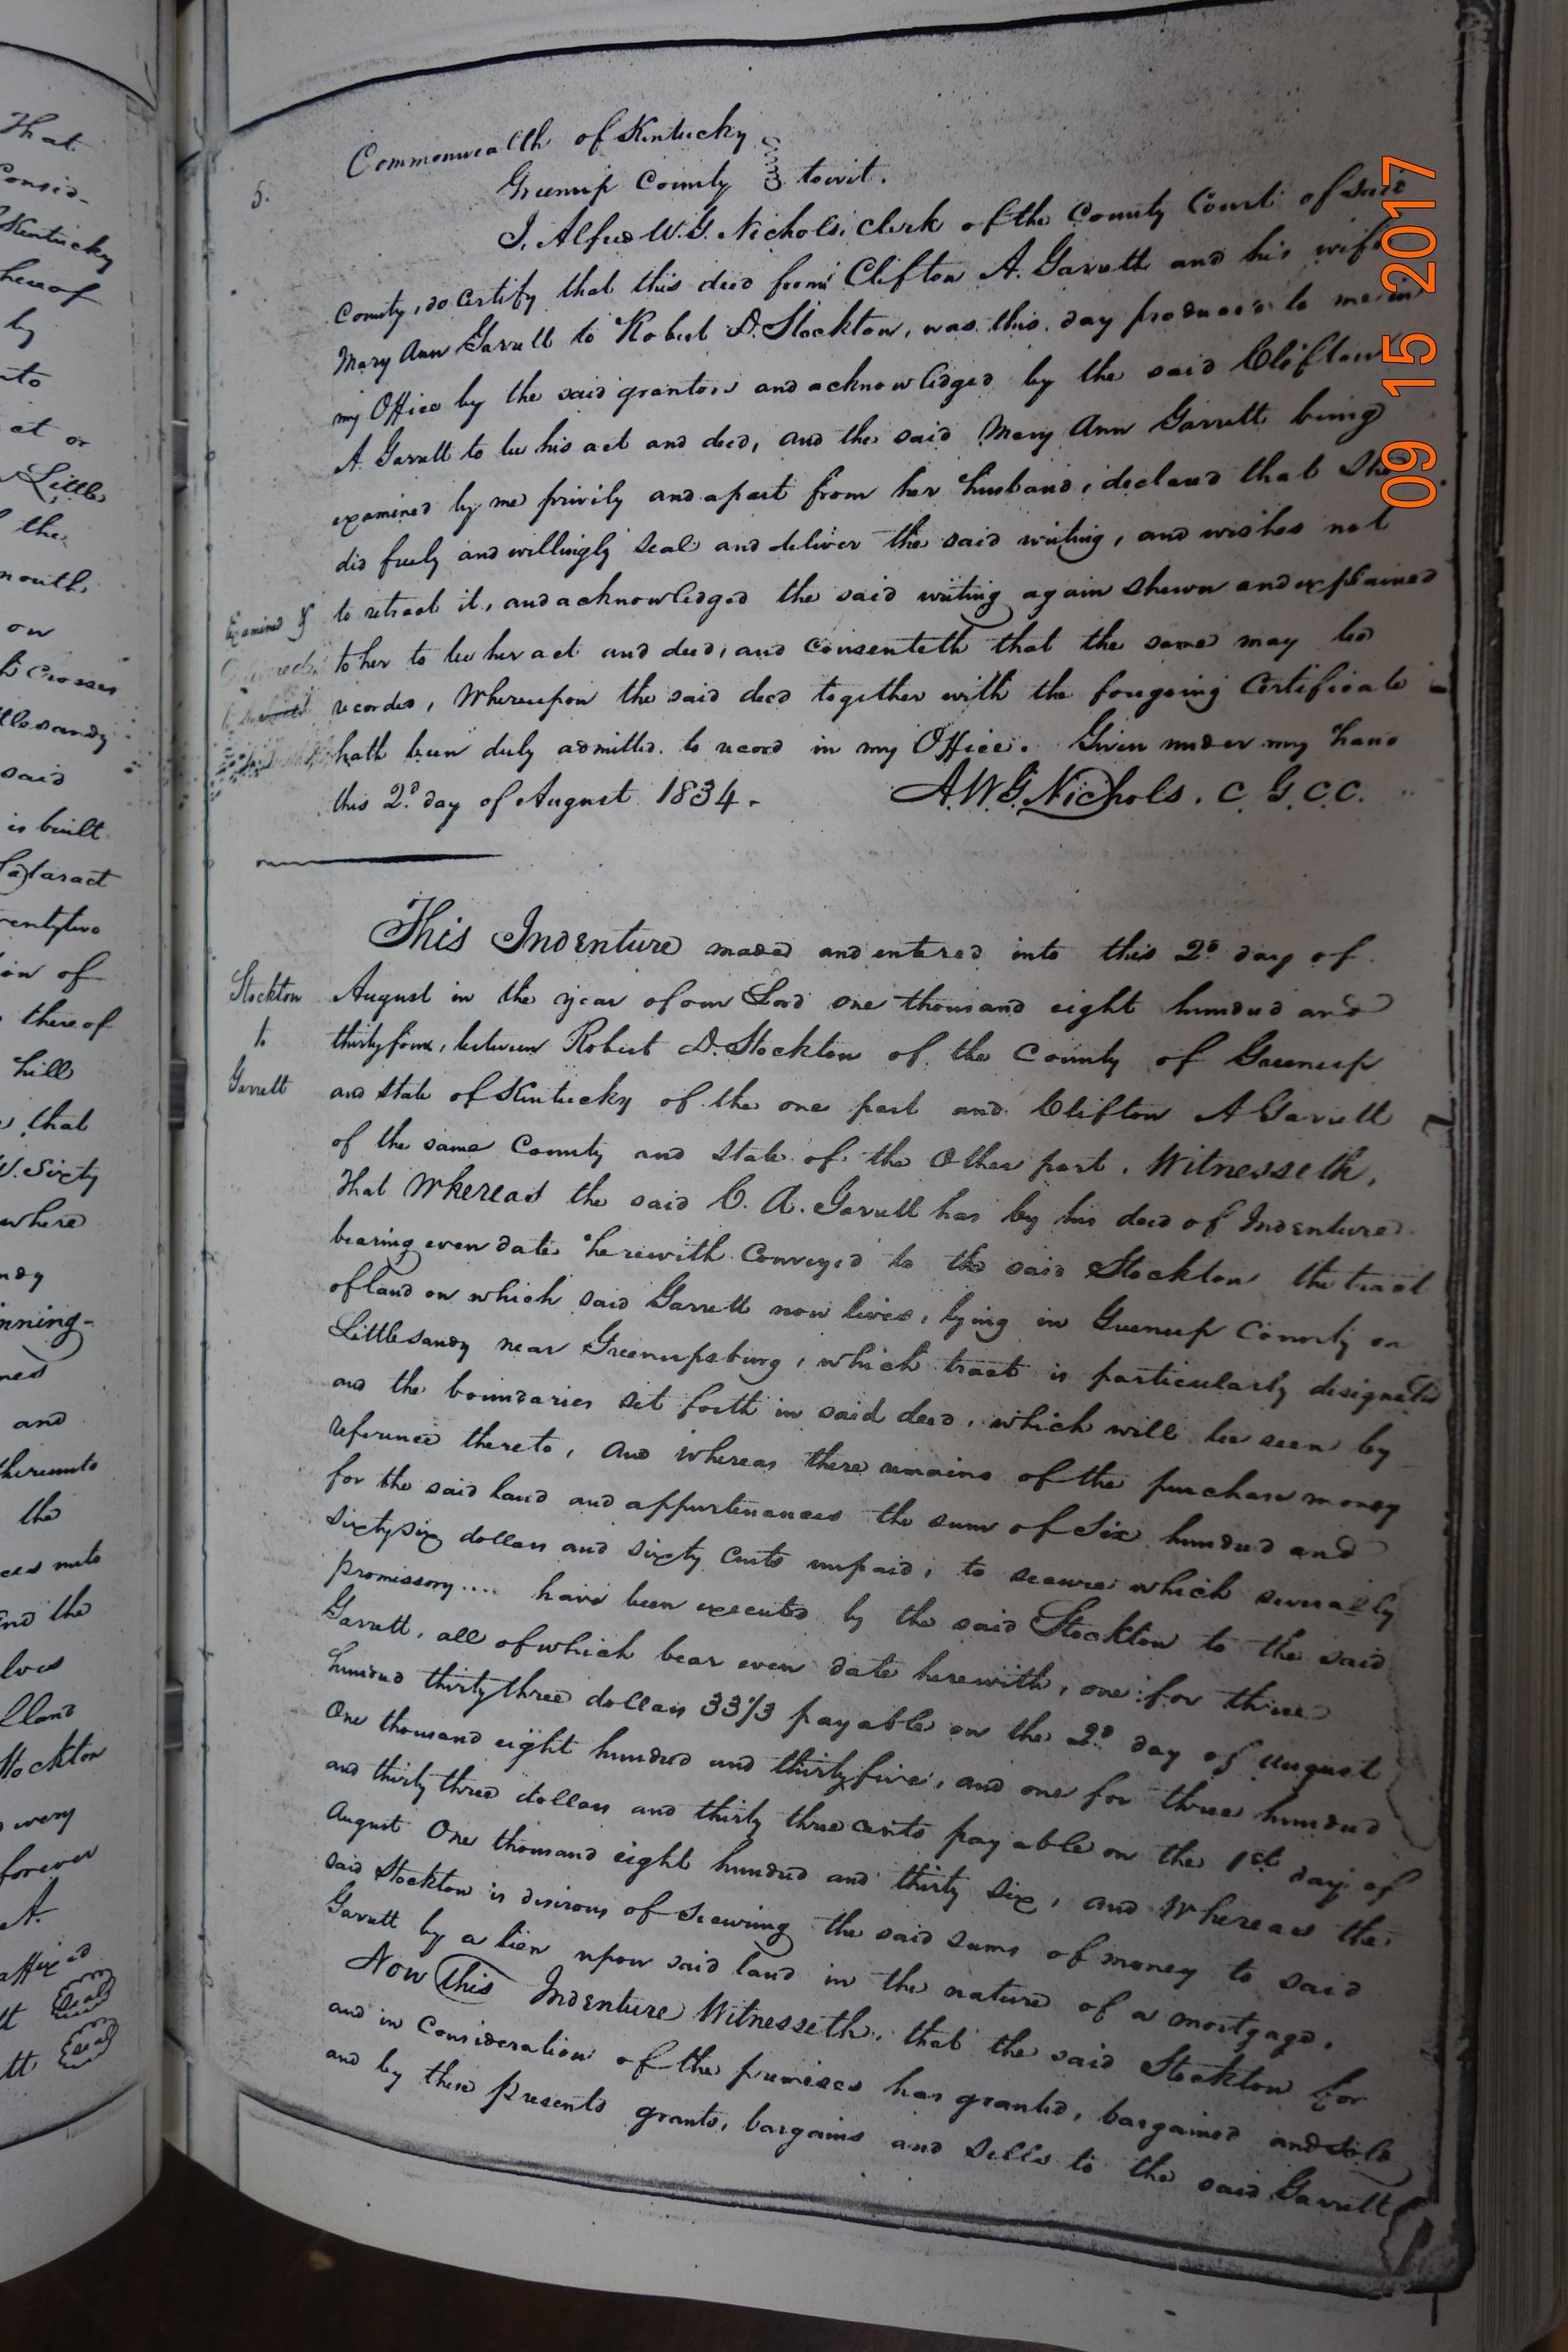 That
Consid-
Kentucky
hereof
by
nto
ct or
Little
the
mouth
on
Crosses
ttlesandy
said
is built
Cataract
wentytwo
on of
thereof
hill
that
W. Sixty
where
ndy
inning-
ned
and
thereunto
the
ces unto
and the
lves
lland
Stockton
very
forever
A.
affixed
tt Seal
tt Seal
5.
Commonwealth of Kentucky
Greenup County towit.
I. Alfred W. G. Nichols, Clerk of the County Court of said
County, do Certify that this deed from Clifton A. Garrett and his wife
Mary Ann Garrett to Robert D. Stockton, was this day produced to me in
my Office by the said grantors and acknowledged by the said Clifton
A Garrett to be his act and deed, and the said Mary Ann Garrett being
examined by me privily and apart from her husband, declared that She
did freely and willingly seal and deliver the said writing, and wishes not
to retract it, and acknowledged the said writing again shewn and explained
to her to be her act and deed, and consenteth that the same may be
recorded, Whereupon the said deed together with the foregoing Certificate
hath been duly admitted to record in my Office. Given under my hand
this 2d day of August 1834.
A.W.G. Nichols. C. G. C. C.
Examined &
Stockton
to
Garrett
This Indenture maded and entered into this 2d day of
August in the year of our Lord one thousand eight hundred and
thirty four, between Robert D. Stockton of the County of Greenup
and State of Kentucky of the one part and Clifton A Garrett
of the same County and State of the Other part. Witnesseth,
That Whereas the said C. A. Garrett has by his deed of Indenture
bearing even date herewith Conveyed to the said Stockton the tract
of land on which said Garrett now lives, lying in Greenup County on
Littlesandy near Greenupsburg, which tract is particularly designated
and the boundaries set forth in said deed, which will be seen by
reference thereto, and whereas there remains of the purchase money
for the said land and appurtenances the sum of Six hundred and
sixtysix dollars and sixty cents unpaid, to secure which severally
promissory.... have been executed by the said Stockton to the said
Garrett, all of which bear even date herewith, one for three
hundred thirtythree dollars 33 1/3 payable on the 2d day of August
One thousand eight hundred and thirtyfive, and one for three hundred
and thirty three dollars and thirty three cents payable on the 1st day of
August One thousand eight hundred and thirty six, and Whereas the
said Stockton is desirous of Securing the said sums of money to said
Garrett by a lien upon said land in the nature of a mortgage.
Now this Indenture Witnesseth, that the said Stockton for
and in Consideration of the premises has granted, bargained and sold
and by these presents grants, bargains and sells to the said Garrett
09 15 2017